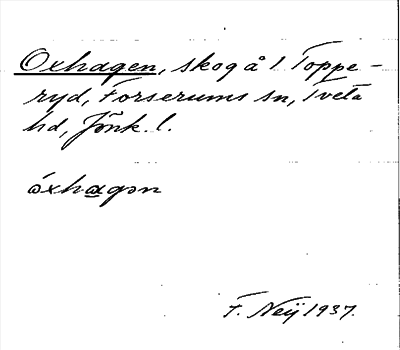 Oxhagen, skog å 1 Toppe-
ryd, Forserums sn, Tveta
hd, Jönk. l.
óxhagən
F. Neij 1937.